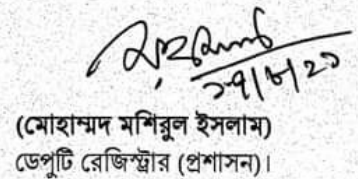 ১৭/৮/২১
(মোহাম্মদ মশিরুল ইসলাম)
ডেপুটি রেজিস্ট্রার (প্রশাসন)।